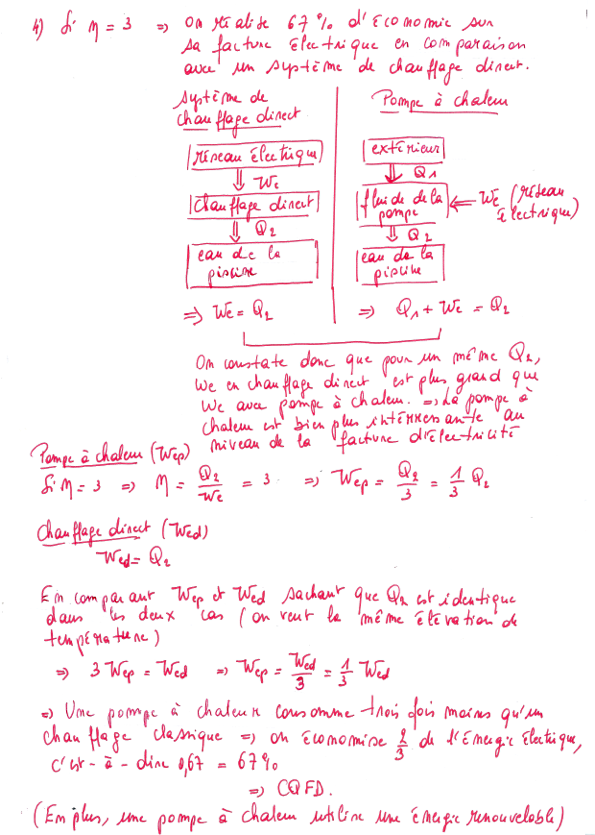 4) Si η = 3 => On réalise 67% d'économie sur
sa facture électrique en comparaison
avec un système de chauffage direct.
Système de
chauffage direct
réseau électrique
⇓ We
chauffage direct
⇓ Q2
eau de la
piscine
=> We = Q2
Pompe à chaleur
extérieur
⇓ Q1
fluide de la
pompe
⇐ We (réseau
électrique)
⇓ Q2
eau de la
piscine
=> Q1 + We = Q2
On constate donc que pour un même Q2,
We en chauffage direct est plus grand que
We avec pompe à chaleur. => La pompe à
chaleur est bien plus intérressante au
niveau de la facture d'électricité
Pompe à chaleur (Wep)
Si η = 3 => η = Q2/We = 3 => Wep = Q2/3 = 1/3 Q2
Chauffage direct (Wed)
Wed = Q2
En comparant Wep et Wed sachant que Q2 est identique
dans les deux cas (on veut la même élévation de
température)
=> 3 Wep = Wed => Wep = Wed/3 = 1/3 Wed
=> Une pompe à chaleur consomme trois fois moins qu'un
chauffage classique => on économise 2/3 de l'énergie électrique,
c'est-à-dire 0,67 = 67%
=> CQFD.
(En plus, une pompe à chaleur utilise une énergie renouvelable)